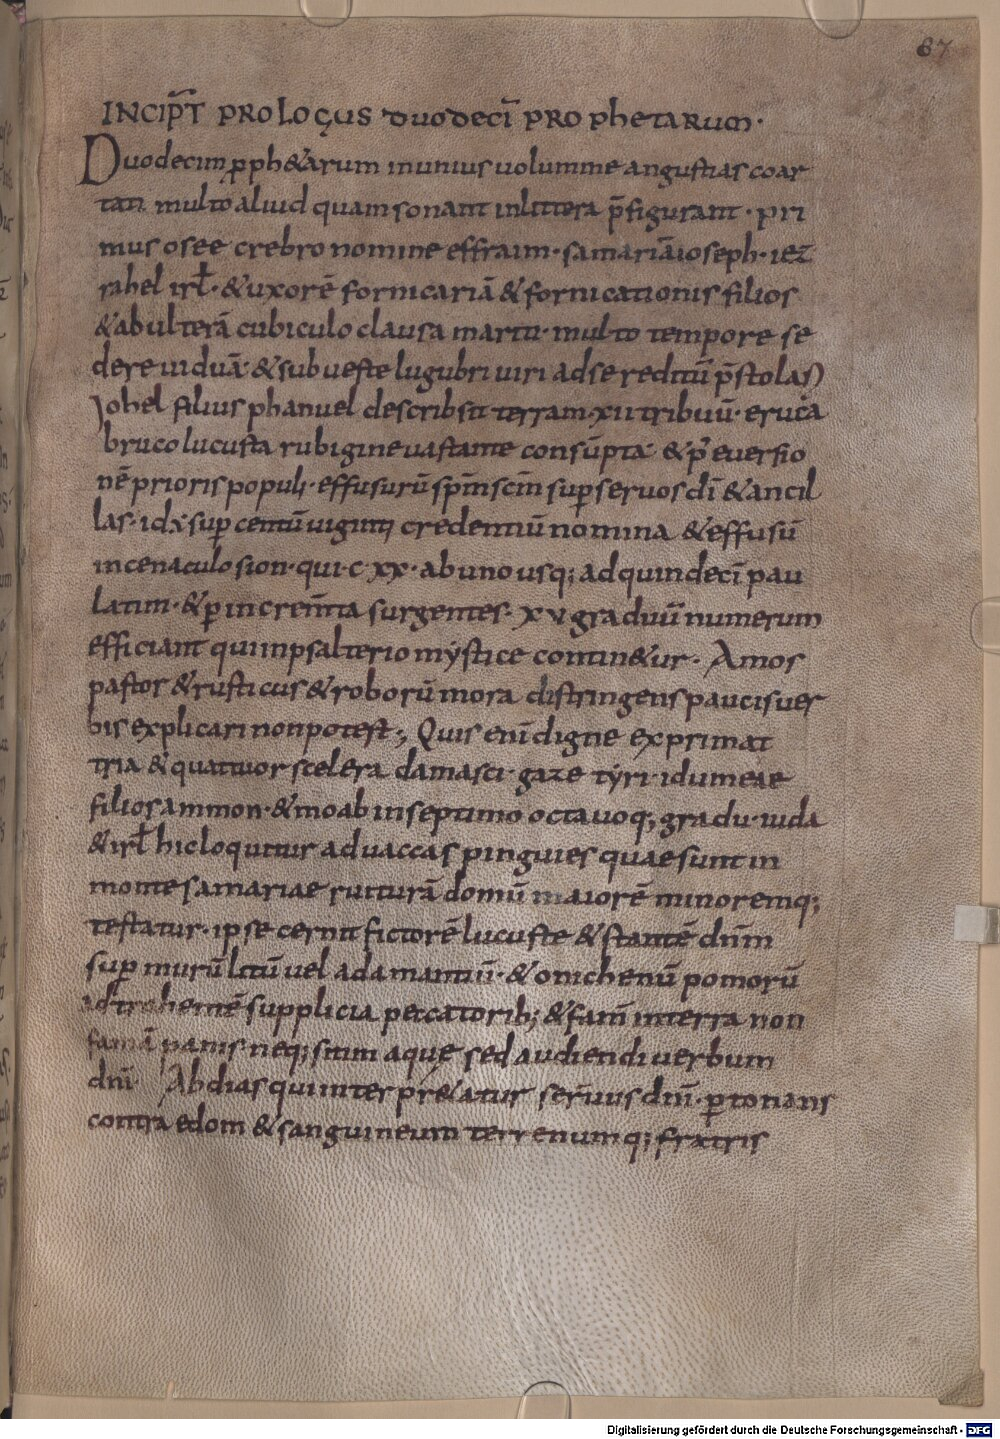 87
INCIP̄T PROLOGUS duodecī PROPhetaRum·
Duodecim ꝓph&arum inunius uolumine angustias coar
tati multo aliud quam sonant inlittera p̄figurant· pri
mus osee crebro nomine effraim· samariā ioseph· iez
rahel irł· &uxorē fornicariā &fornicationis filios
&abulterā cubiculo clausa mariti· multo tempore se
dere uiduā· &sub ueste lugubri uiri adse reditū p̄stolari
Iohel filius phanuel describsit terram·xii tribuū· erucā
bruco lucusta rubigine uastante consūpta· &p̄ euersio
nē prioris populi· effusurū sp̄m sc̄m suꝑ seruos dī &ancil
las· id÷ suꝑ centū uiginti credentiū nomina &effusū
incenaculo sion· qui·c·xx· abuno usq; adquindecī pau
latim· &ꝑ increm̄ta surgentes· xv graduū numerum
efficiant qui inpsalterio mystice contin&ur· Amos
pastor &rusticus &roborū mora distringens paucis uer
bis explicari nonpotest; Quis enī digne exprimat
tria &quattuor scelera damasci· gaze tyri· idumeae
filiorammon· &moab inseptimo octauoq; gradu· iuda
&irł hic loquitur aduaccas pinguies quae sunt in
monte samariae ruiturā domū maiorē minoremq;
testatur· ipse cernit fictorē lucuste &stantē dn̄m
suꝑ murū litū uel adamantiū· &onichenū pomorū
adtrahentē supplicia peccatorib; &fam̄ interra non
famā panis neq; sitim aquę sed audiendi uerbum
dn̄i· Abdias qui interpr&atur seruus dn̄i· ꝑtonans
contra edom &sanguineum terrenumq; fratris
Digitalisierung gefördert durch die Deutsche Forschungsgemeinschaft - DFG